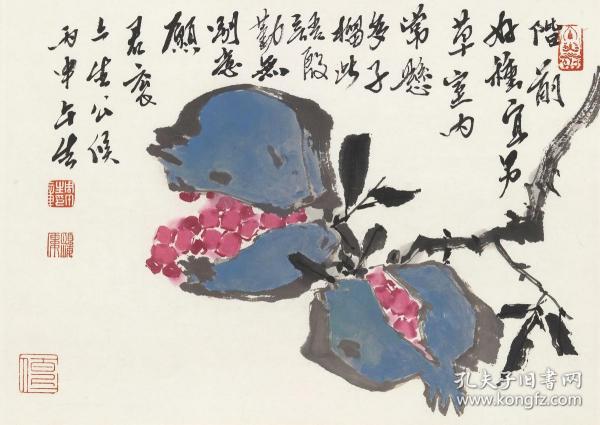 階前
好種宜男
草室内
常懸
多子
榴此
語殷
勤無
別意
願
君裔
上生公侯
丙申上生
孔夫子旧书网
www.kongfz.com